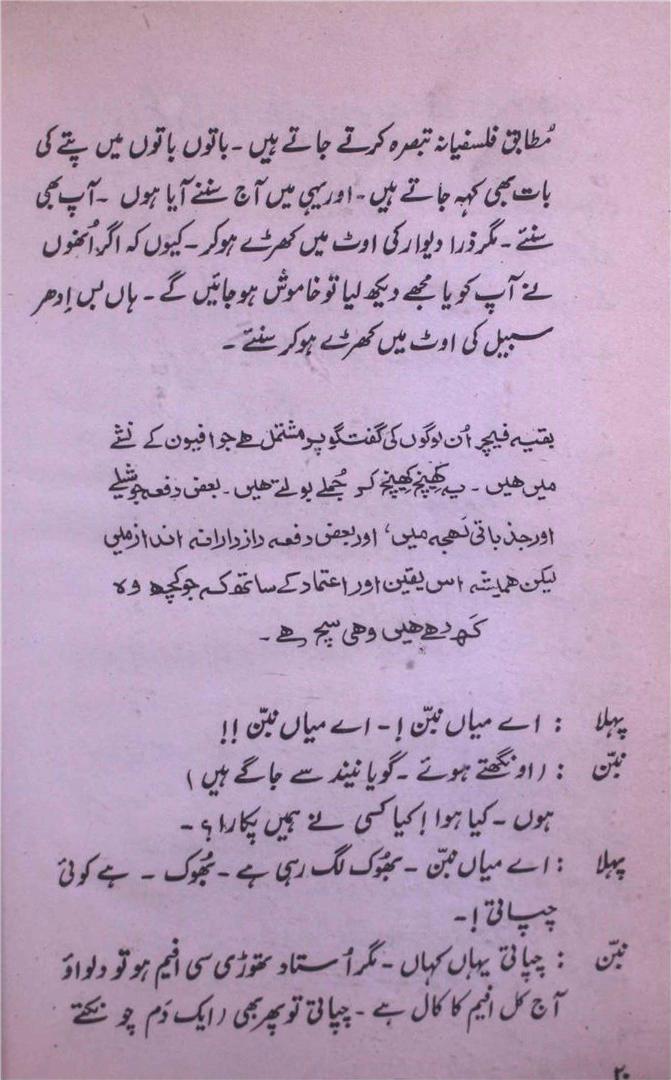 مُطابق فلسفیانہ تبصرہ کرتے جاتے ہیں ۔ باتوں باتوں میں پتے کی
بات بھی کہہ جاتے ہیں ۔ اور یہی میں آج سننے آیا ہوں ۔ آپ بھی
سنئے ۔ مگر ذرا دیوار کی اوٹ میں کھڑے ہو کر ۔ کیوں کہ اگر اُنھوں
نے آپ کو یا مجھے دیکھ لیا تو خاموش ہو جائیں گے ۔ ہاں بس اِدھر
سبیل کی اوٹ میں کھڑے ہو کر سنئے ۔
بقیہ فیچر اُن لوگوں کی گفتگو پر مشتمل ہے جو افیون کے نشے
میں ہیں ۔ یہ کھینچ کھینچ کر جُملے بولتے ہیں ۔ بعض دفعہ جوشیلے
اور جذباتی لہجہ میں، اور بعض دفعہ رازدارانہ انداز میں
لیکن ہمیشہ اس یقین اور اعتماد کے ساتھ کہ جو کچھ وہ
کہہ رہے ہیں وہی سچ ہے ۔
پہلا : اے میاں نبّن ! ۔ اے میاں نبّن !!
نبّن : (اونگھتے ہوئے ۔ گویا نیند سے جاگے ہیں)
ہوں ۔ کیا ہوا ! کیا کسی نے ہمیں پکارا ؟ ۔
پہلا : اے میاں نبّن ۔ بھُوک لگ رہی ہے ۔ بھُوک ۔ ہے کوئی
چپاتی ! ۔
نبّن : چپاتی یہاں کہاں ۔ مگر اُستاد تھوڑی سی افیم ہو تو دلواؤ
آج کل افیم کا کال ہے ۔ چپاتی تو پھر بھی (ایک دَم چونکتے
۲۰